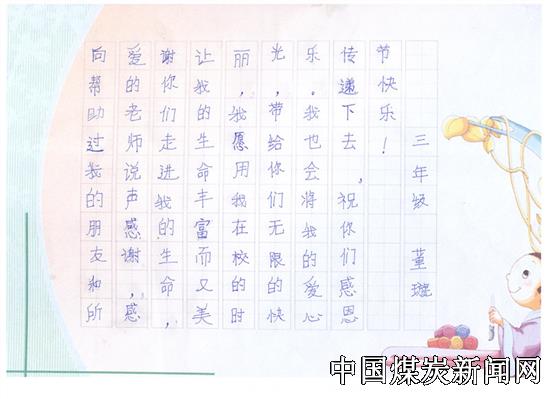 向帮助过我的朋友和所
爱的老师说声感谢，感
谢你们走进我的生命，
让我的生命丰富而又美
丽，我愿用我在校的时
光，带给你们无限的快
乐。我也会将我的爱心
传递下去，祝你们感恩
节快乐！
三年级 董璇
中国煤炭新闻网